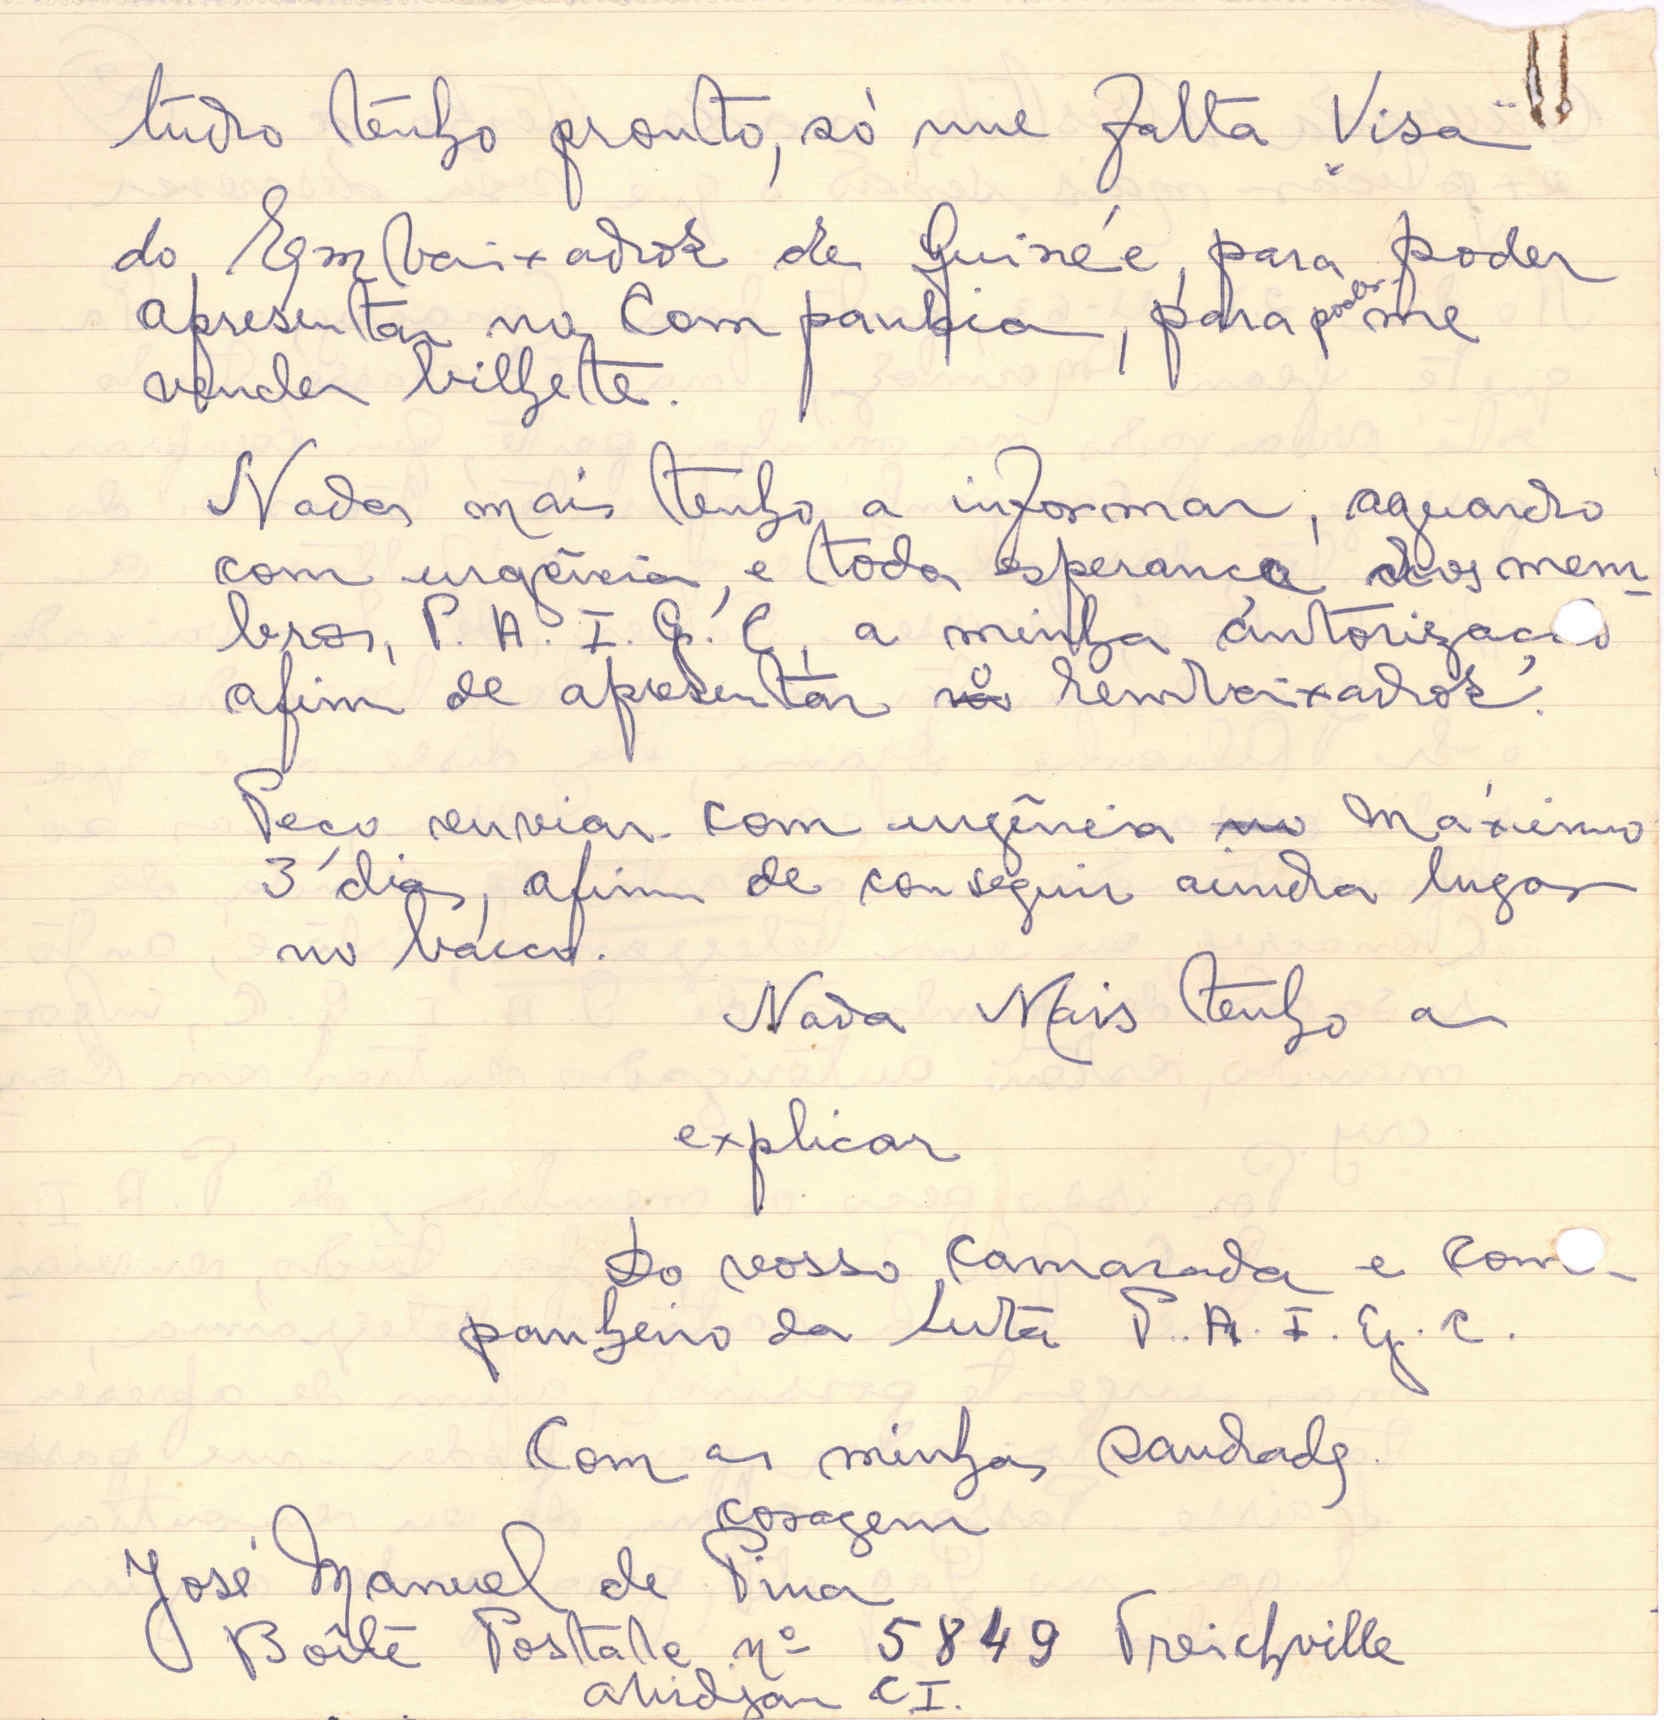 tudo tenho pronto, só me falta "Visa"
do Embaixador de Guinée, para poder
apresentar na Companhia, para poder me
vender bilhete.
Nada mais tenho a informar, aguardo
com urgência, e toda esperança dos mem-
bros, P. A. I. G. C, a minha autorização
afim de apresentar ó hembaixador.
Peço enviar com urgência no Máximo
3 dias, afim de conseguir ainda lugar
no barco.
Nada Mais tenho a
explicar
Do vosso camarada e com-
panheiro da Luta P. A. I. G. C.
Com as minhas saudades
coragem
José Manuel de Pina
Boîte Postale nº 5849 Treichville
Abidjan C I.